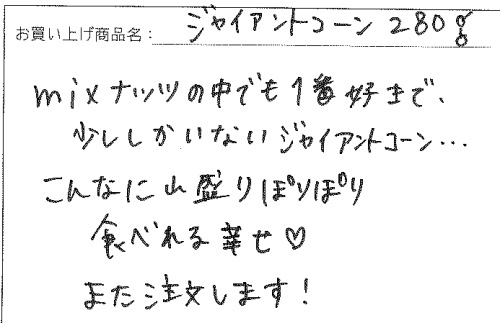 お買い上げ商品名： ジャイアントコーン 280g
mixナッツの中でも1番好きで、
少ししかいないジャイアントコーン…
こんなに山盛りぽりぽり
食べれる幸せ♡
また注文します！